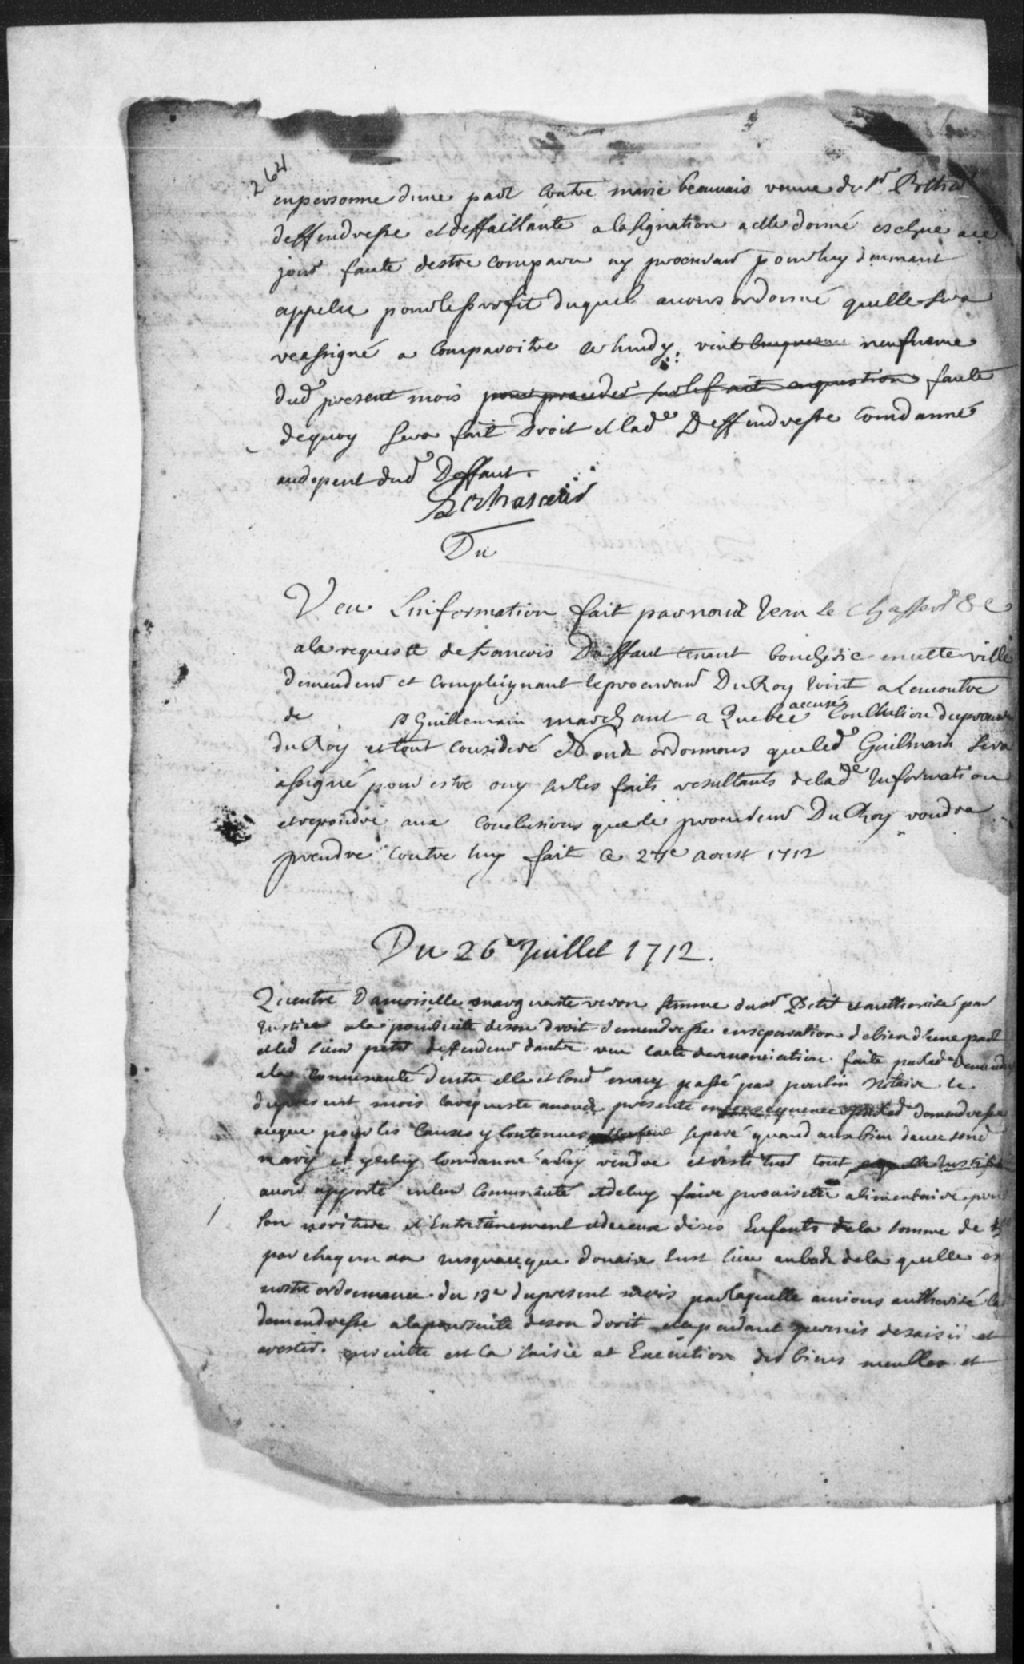 264
en personne dune part Contre marie beauvais veuve du Sr
deffendresse et deffaillante a lassignation a elle donné escheue a ce
jour faute destre comparu ny procureur pour luy dumant
appellée pour le proffit duquel avons ordonné quelle sera
reassigné a Comparoitre a lundy vint neufieme
dud present mois pour proceder sur le fait en question faute
de quoy sera fait Droit et lade Deffendresse Condamné
aux depent dud Deffaut.
Du
Veu Linformation fait par nous Jean le Chasseur &c
a la requeste de francois tenant boucherie en cette ville
demendeur et Complaignant le procureur Du Roy Joint a Lencontre
de Sr Guillemin marchant a Quebec accusé Conclution du procureur
du Roy et tout consideré Nous ordonnons que led Guillmain sera
assigné pour estre ouy sur les faits resultants de lade Information
et repondre aux Conclusions que le procureur Du Roy voudra
prendre Contre luy fait ce 27e aoust 1712
Du 26e Juillet 1712.
Entre Damoiselle marguerite veron femme du Sr Petit et authorisé par
Justice a la poursuitte de son droit demendresse en separation de biens d'une part
et led Sieur petit deffendeur dautre veu lacte de renonciation faite par lade Demendresse
a la Communauté dentre elle et lond mary passé par notaire le
du present mois la requeste a nous presenté par lade demendresse
a ce que pour les Causes y Contenues separé quand aux biens davec sond
mary et yceluy Condamné a luy rendre et restituer tout
avoir apporté en leur Communauté et de luy faire provision alimentaire pour
son noriture et Entretenement et de ceux de ses Enfents de la somme de
par chacun an jusqua ce que douaire eust lieu au bas de la quelle est
nostre ordonnance du 13e du present mois par laquelle aurions authorisé la
demendresse a la poursuitte de son droit et cependant permis de saisir et
arester. en suitte est la saisie et Execution des biens meubles et